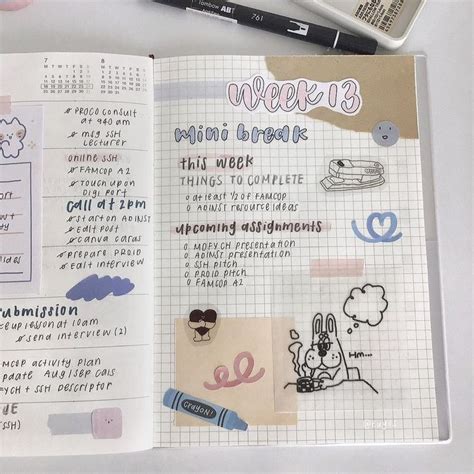 Tombow ABT
761
7
8
PROCO CONSULT
AT 940 AM
MSG SSH
LECTURER
online SSH
FAMCOP A2
TOUCH UP ON
DIGI PORT
CALL AT 2PM
START ON ADINST
EDIT POST
CANVA CARDS
PREPARE PROID
EDIT INTERVIEW
ubmission
at 10am
SEND INTERVIEW (2)
MCOP ACTIVITY PLAN
PDATE AUG/SEP CALS
YCH + SSH DESCRIPTOR
SSH)
week 13
mini break
this week
THINGS TO COMPLETE
o AT LEAST 1/2 OF FAMCOP
o ADINST RESOURCE IDEAS
upcoming assignments
o MOFYCH PRESENTATION
o ADINST PRESENTATION
o SSH PITCH
o PROID PITCH
o FAMCOP A2
HM...
CRAYON!